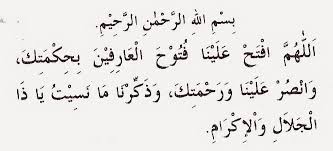 بِسْمِ اللهِ الرَّحْمٰنِ الرَّحِيْمِ.
اَللّٰهُمَّ افْتَحْ عَلَيْنَا فُتُوْحَ الْعَارِفِيْنَ بِحِكْمَتِكَ،
وَانْصُرْ عَلَيْنَا وَرَحْمَتِكَ، وَذَكِّرْنَا مَا نَسِيْتُ يَا ذَا
الْجَلَالِ وَالْاِكْرَامِ.